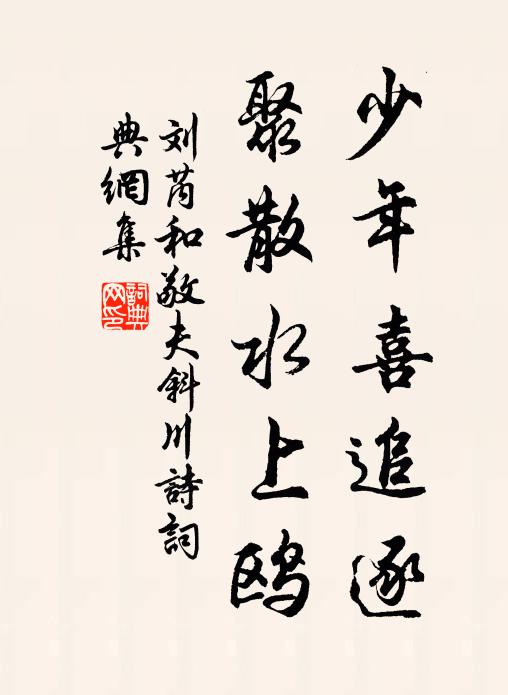 少年喜追逐
聚散水上鸥
刘芮和敬夫斜川詩詞
典網集
詞典
网印